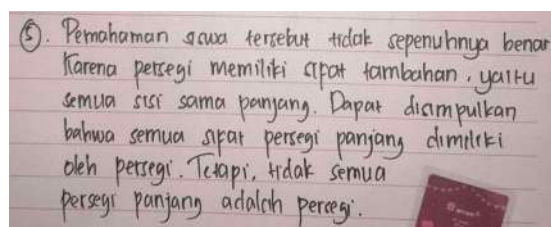 ⑤. Pemahaman siswa tersebut tidak sepenuhnya benar
Karena persegi memiliki sifat tambahan, yaitu
semua sisi sama panjang. Dapat disimpulkan
bahwa semua sifat persegi panjang dimiliki
oleh persegi. Tetapi, tidak semua
persegi panjang adalah persegi.